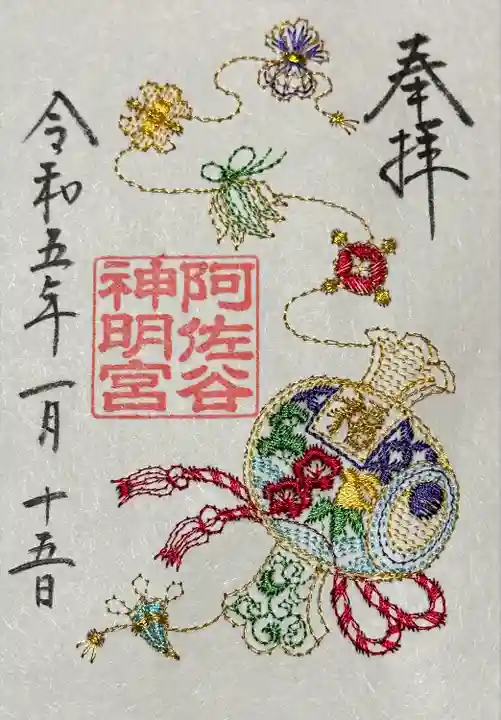 奉拝
阿佐谷
神明宮
令和五年一月十五日